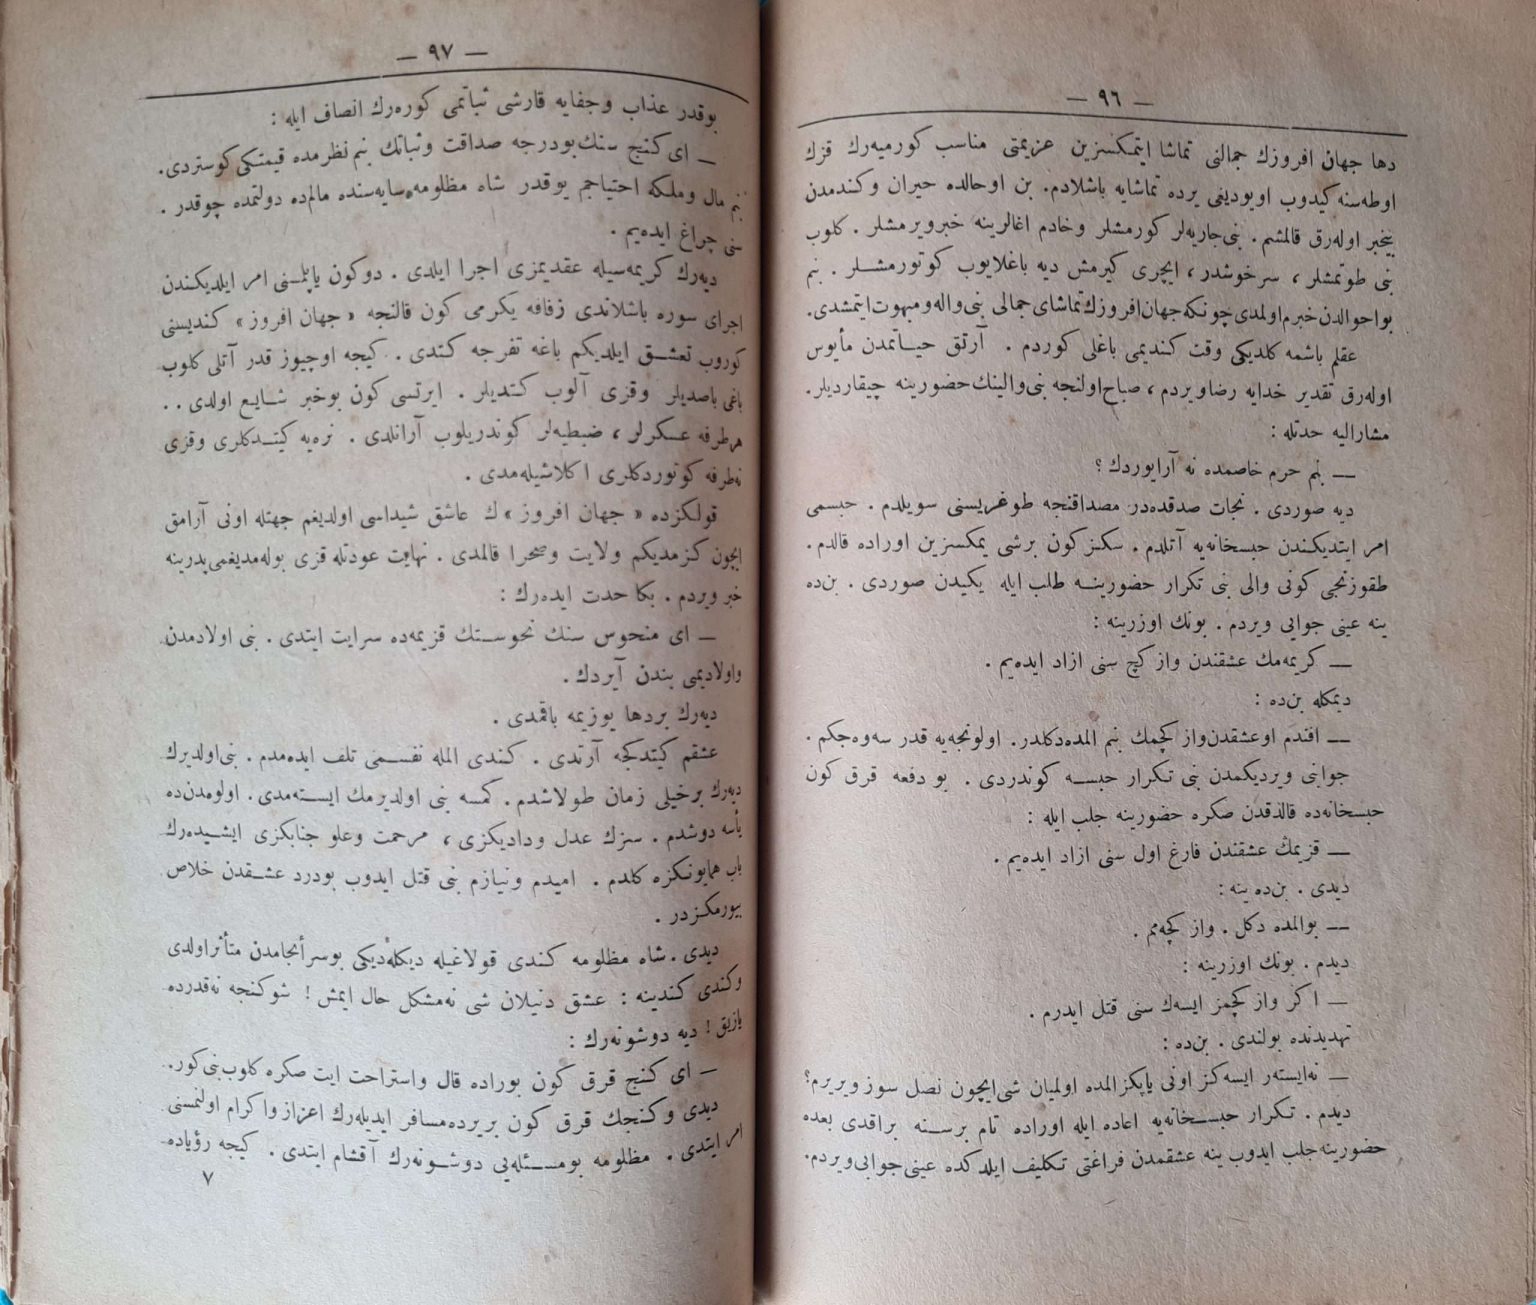 — ٩٦ —
دها جهان افروزك جمالنی تماشا ایتمكسزین عزیمتی مناسب كورمیه‌رك قزك
اوطه‌سنه كیدوب اویودیغی یرده تماشایه باشلادم. بن اوحالده حیران وكندمدن
بیخبر اوله‌رق قالمشم. بنی جاریه‌لر كورمشلر وخادم اغالرینه خبرویرمشلر. كلوب
بنی طوتمشلر، سرخوشدر، ایچری كیرمش دیه باغلایوب كوتورمشلر. بنم
بواحوالدن خبرم اولمدی چونكه جهان افروزك تماشای جمالی بنی واله ومبهوت ایتمشدی.
عقلم باشمه كلدیكی وقت كندیمی باغلی كوردم. آرتق حیاتمدن مأیوس
اوله‌رق تقدیر خدایه رضا ویردم، صباح اولنجه بنی والینك حضورینه چیقاردیلر.
مشارالیه حدتله :
— بنم حرم خاصمده نه آرایوردك؟
دیه صوردی. نجات صدقده‌در مصداقنجه طوغریسنی سویلدم. حبسمی
امر ایتدیكندن حبسخانه‌یه آتلدم. سكز كون برشی یمكسزین اوراده قالدم.
طقوزنجی كونی والی بنی تكرار حضورینه طلب ایله یكیدن صوردی. بن‌ده
ینه عینی جوابی ویردم. بونك اوزرینه :
— كریمه‌مك عشقندن واز كچ سنی ازاد ایده‌یم.
دیمكله بن‌ده :
— افندم او عشقدن واز كچمك بنم المده دكلدر. اولونجه‌یه قدر سه‌وه‌جكم.
جوابنی ویردیكمدن بنی تكرار حبسه كوندردی. بو دفعه قرق كون
حبسخانه‌ده قالدقدن صكره حضورینه جلب ایله :
— قزیمڭ عشقندن فارغ اول سنی ازاد ایده‌یم.
دیدی. بن‌ده ینه :
— بو المده دكل. واز كچه‌مم.
دیدم. بونك اوزرینه :
— اكر واز كچمز ایسه‌ك سنی قتل ایدرم.
تهدیدنده بولندی. بن‌ده :
— نه‌ایستر ایسه‌كز اونی یاپكز المده اولمیان شی ایچون نصل سوز ویریرم؟
دیدم. تكرار حبسخانه‌یه اعاده ایله اوراده تام برسنه براقدی بعده
حضورینه جلب ایدوب ینه عشقمدن فراغتی تكلیف ایلدكده عینی جوابی ویردم.
— ٩٧ —
بوقدر عذاب وجفایه قارشی ثباتمی كوره‌رك انصاف ایله :
— ای كنج سنك بودرجه صداقت وثباتك بنم نظرمده قیمتكی كوستردی.
بنم مال وملكه احتیاجم یوقدر شاه مظلومه سایه‌سنده مالم‌ده دولتمده چوقدر.
سنی چراغ ایده‌یم.
دیه‌رك كریمه‌سیله عقدیمزی اجرا ایلدی. دوكون یاپلمسنی امر ایلدیكندن
اجرای سوره باشلاندی زفافه یكرمی كون قالنجه «جهان افروز» كندیسنی
كوروب تعشق ایلدیكم باغه تفرجه كتدی. كیجه اوچیوز قدر آتلی كلوب
باغی باصدیلر وقزی آلوب كتدیلر. ایرتسی كون بوخبر شایع اولدی..
هرطرفه عسكرلر، ضبطیه‌لر كوندریلوب آرانلدی. نره‌یه كیتدكلری وقزی
نه‌طرفه كوتوردكلری اكلاشیله‌مدی.
قولكزده «جهان افروز» ك عاشق شیداسی اولدیغم جهتله اونی آرامق
ایچون كزمدیكم ولایت وصحرا قالمدی. نهایت عودتله قزی بوله‌مدیغمی پدرینه
خبر ویردم. بكا حدت ایده‌رك :
— ای منحوس سنك نحوستك قزیمه‌ده سرایت ایتدی. بنی اولادمدن
واولادیمی بندن آیردك.
دیه‌رك بردها یوزیمه باقمدی.
عشقم كیتدكجه آرتدی. كندی المله نفسمی تلف ایده‌مدم. بنی اولدیرك
دیه‌رك برخیلی زمان طولاشدم. كمسه بنی اولدیرمك ایسته‌مدی. اولومدن‌ده
یأسه دوشدم. سزك عدل ودادیكزی، مرحمت وعلو جنابكزی ایشیده‌رك
باب همایونكزه كلدم. امیدم ونیازم بنی قتل ایدوب بودرد عشقدن خلاص
بیورمكزدر.
دیدی. شاه مظلومه كندی قولاغیله دیكله‌دیكی بوسرأنجامدن متأثر اولدی
وكندی كندینه : عشق دنیلان شی نه‌مشكل حال ایمش! شوكنجه نه‌قدرده
یازیق! دیه دوشونه‌رك :
— ای كنج قرق كون بوراده قال واستراحت ایت صكره كلوب بنی كور.
دیدی وكنجك قرق كون بریرده مسافر ایدیله‌رك اعزاز واكرام اولنمسنی
امر ایتدی. مظلومه بومسئله‌یی دوشونه‌رك آقشام ایتدی. كیجه رؤیاده
٧